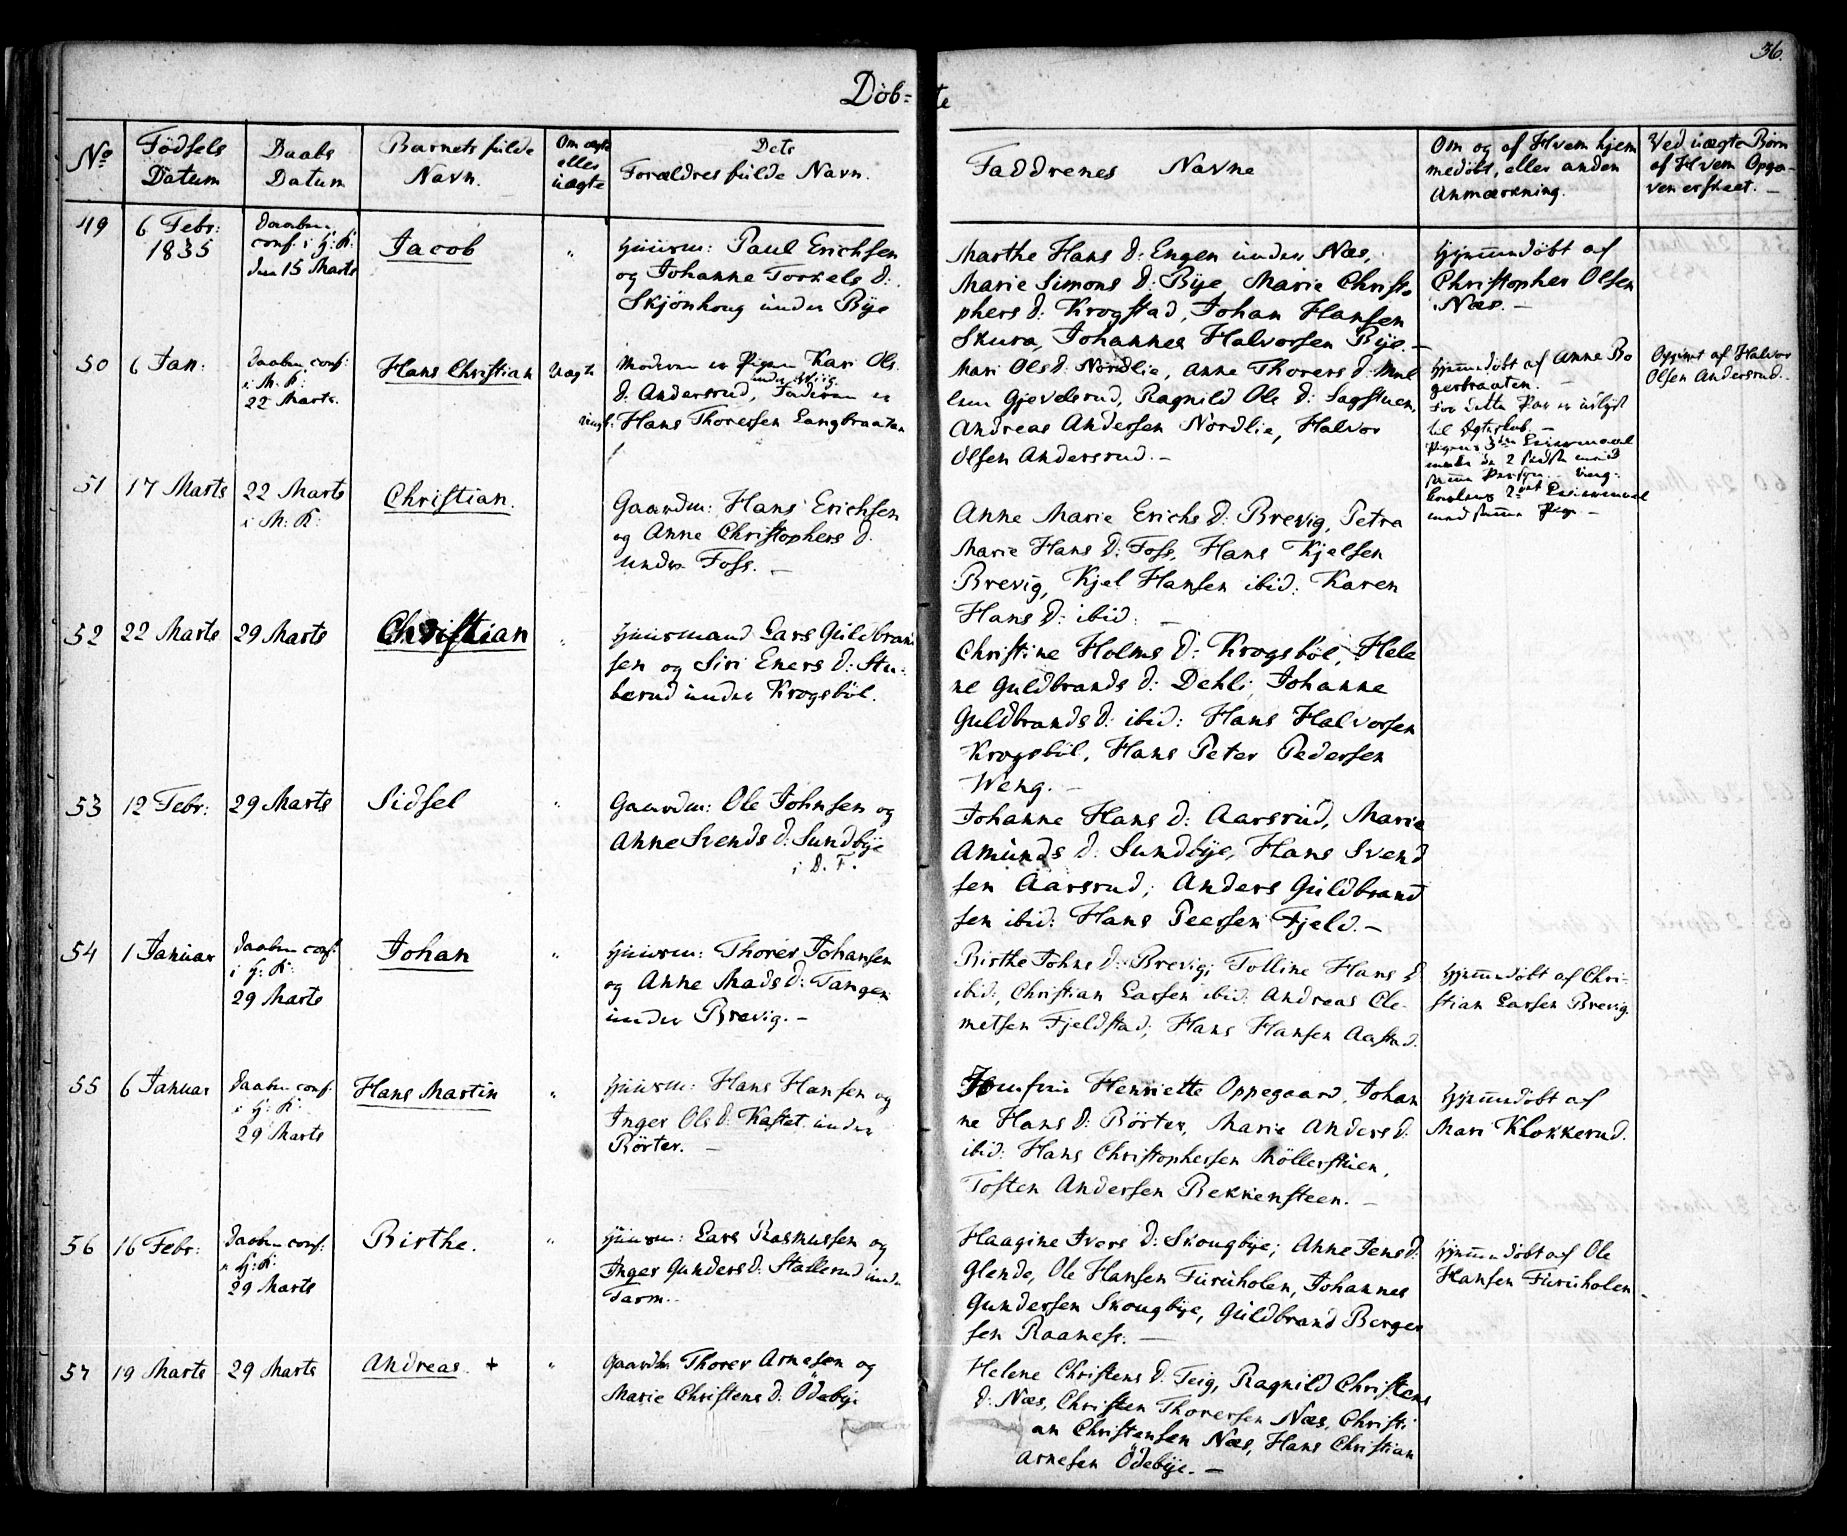 36.
Döb=te
No
Födsels Datum
Daabs Datum
Barnets fulde Navn.
Om ægte eller uægte
Dets Forældres fulde Navn.
Faddrenes Navne
Om og af Hvem hjem
medöbt, eller anden
Anmærkning.
Ved uægte Börn
af Hvem Opga-
ven er skeet. -
49
6 Febr:
1835
Daaben
conf. i H: K:
den 15 Marts
Jacob
"
Huusm: Paul Erichsen
og Johanne Torkels D:
Skjönhoug under Bÿe
Marthe Hans D: Engen under Næs,
Marie Simons D: Bÿe, Marie Christo
phers D: Krogstad, Johan Hansen
Skura, Johannes Halvorsen Bÿe. -
Hjemmedöbt af
Christopher Olsen
Næs. -
50
6 Jan:
Daaben conf:
i M: K:
22 Marts.
Hans Christian
Uægte
Moderen er Pigen Kari Ols
D. Andersrud, Faderen er
ungk: Hans Thoresen Langbraaten
Mari Ols D: Nordlie, Anne Thorers D:
Gjevelsrud, Ragnild Ole D: Sagstuen,
Andreas Andersen Nordlie, Halvor
Olsen Andersrud. -
Hjemmedöbt af Anne Bo
gerbraaten. -
For dette Par er udlyst
til Ægteskab. -
Pigens 3die Leiermaal
Person.
2det Leiermaal
med samme Pige -
Opgivet af Halvor
Olsen Andersrud.
51
17 Marts
22 Marts
i M: K:
Christian.
Gaardm: Hans Erichsen
og Anne Christophers D.
under Foss. -
Anne Marie Erichs D: Brevig, Petra
Marie Hans D: Foss, Hans Kjelsen
Brevig, Kjel Hansen ibid: Karen
Hans D: ibid: -
52
22 Marts
29 Marts
Christian
"
Huusmand Lars Guldbrand
sen og Siri Eners D: Stu-
berud under Krogsböl.
Christine Holms D: Krogsböl, Hele
ne Guldbrands D: Dehli, Johanne
Guldbrands D: ibid: Hans Halvorsen
Krogsböl, Hans Peter Pedersen
Weng. -
53
12 Febr:
29 Marts
Sidsel
"
Gaardm: Ole Johnsen og
Anne Svends D: Sundbÿe
i D. F.
Johanne Hans D: Aarsrud, Marie
Amunds D: Sundbÿe, Hans Svend
sen Aarsrud, Anders Guldbrand
sen ibid: Hans Peersen Fjeld. -
54
1 Januar
Daaben conf:
i H: K:
29 Marts
Johan
"
Huusm: Thorer Johansen
og Anne Mads D: Tangen
under Brevig. -
Birthe Johns D: Brevig, Tolline Hans D
ibid:, Christian Larsen ibid: Andreas Cle-
metsen Fjeldstad, Hans Hansen Aastad.
Hjemmedöbt af Chri-
stian Larsen Brevig.
55
6 Januar
Daaben conf:
i H: K:
29 Marts
Hans Martin
"
Huusm: Hans Hansen og
Inger Ols D: Kastet under
Börter. -
Jomfru Henriette Oppegaard, Johan
ne Hans D: Börter, Marie Anders D:
ibid: Hans Christophersen Möllerstuen,
Tosten Andersen Bekkensteen. -
Hjemmedöbt af
Mari Klokkerud.
56
16 Febr:
Daaben conf:
i H: K:
29 Marts
Birthe.
"
Huusm: Lars Rasmussen og
Inger Gunders D: Stallerud under
Tarm.
Haagine Ivers D: Skougbÿe, Anne Jens D:
Glende, Ole Hansen Furuholen, Johannes
Gundersen Skougbÿe, Guldbrand Berger
sen Raaness. -
Hjemmedöbt af Ole
Hansen Furuholen -
57
19 Marts
29 Marts
Andreas. +
"
Gaardm: Thorer Arnesen og
Marie Christens D: Ödebÿe
Helene Christens D: Teig, Ragnild Christens
D: Næs, Christen Thorersen Næs, Christi
an Christensen Næs, Hans Christian
Arnesen Ödebÿe. -